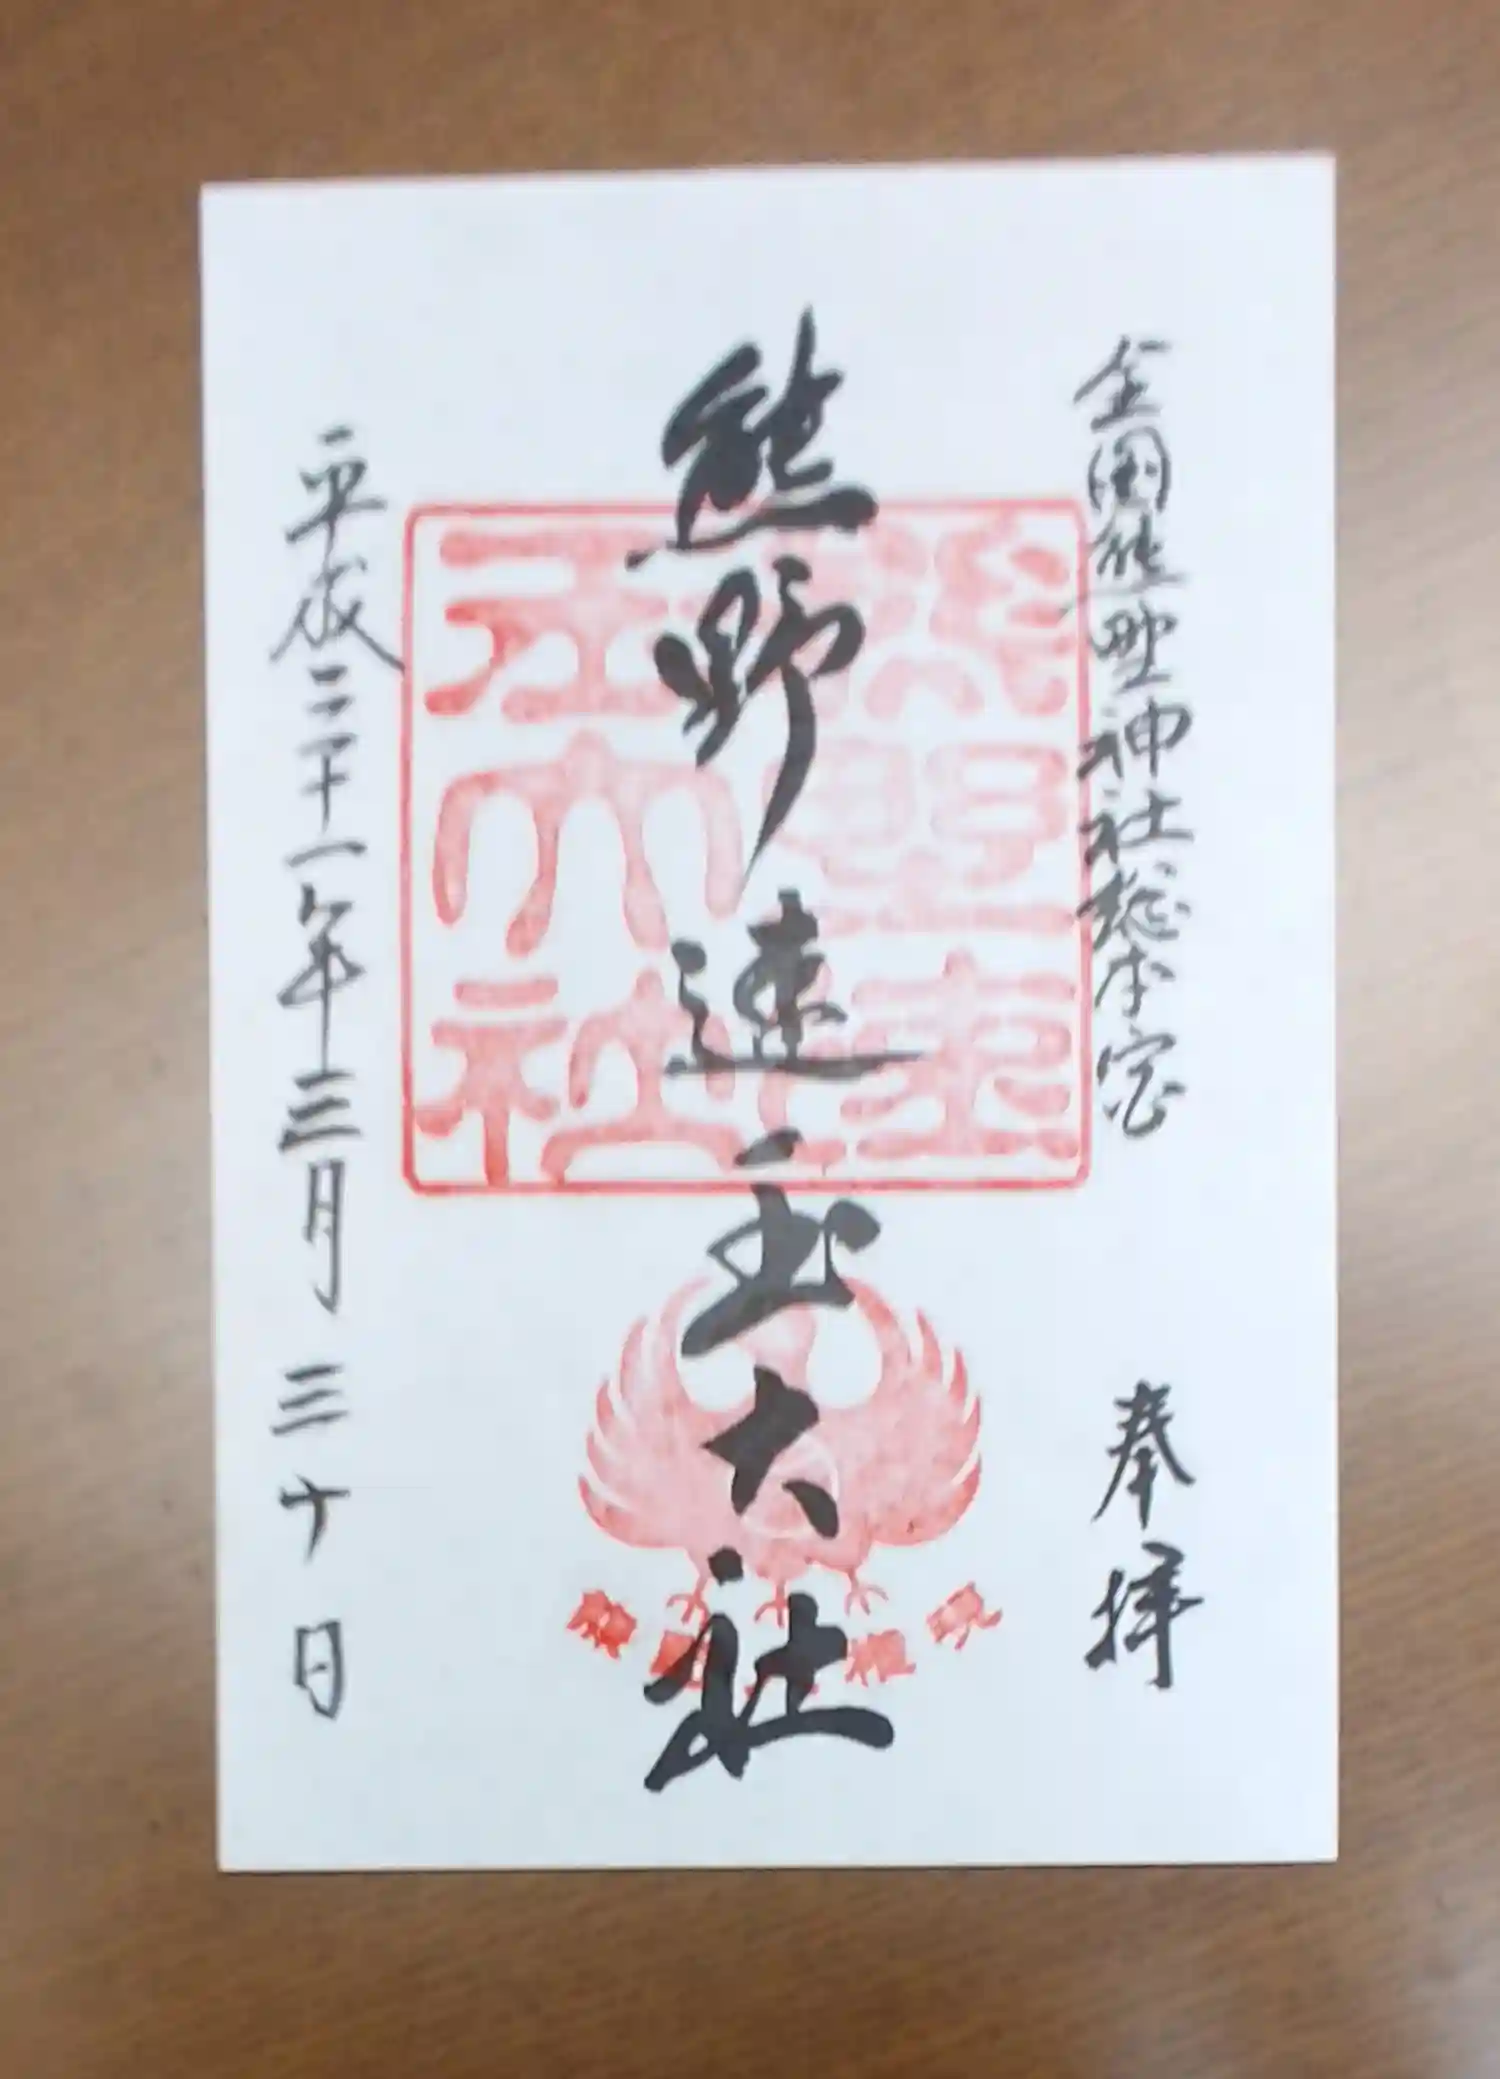 全国熊野神社総本宮
奉拝
熊野速玉大社
熊野速
玉大社
平成三十一年三月三十日